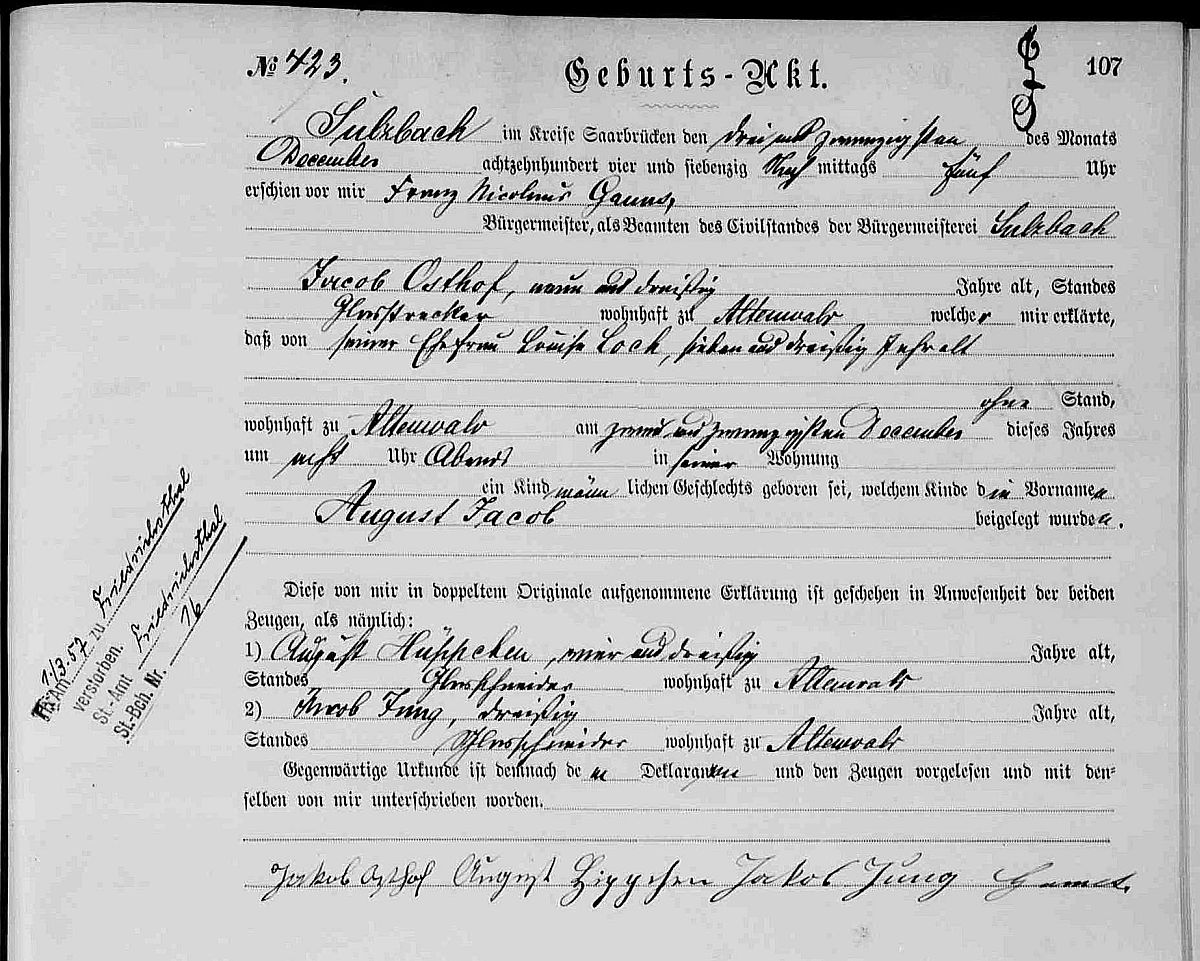 № 423.
Geburts-Akt.
107
Sulzbach im Kreise Saarbrücken den drei und zwanzigsten des Monats
December achtzehnhundert vier und siebenzig Nach mittags fünf Uhr
erschien vor mir Franz Nicolaus
Bürgermeister, als Beamten des Civilstandes der Bürgermeisterei Sulzbach
Jacob Osthof, neun und dreißig Jahre alt, Standes
Glasstrecker wohnhaft zu Altenwald welcher mir erklärte,
daß von seiner Ehefrau Louise Lock, sieben und dreißig Jahr alt
ohne Stand,
wohnhaft zu Altenwald am zwei und zwanzigsten December dieses Jahres
um acht Uhr Abends in seiner Wohnung
ein Kind männ lichen Geschlechts geboren sei, welchem Kinde die Vornamen
August Jacob beigelegt wurden.
Diese von mir in doppeltem Originale aufgenommene Erklärung ist geschehen in Anwesenheit der beiden
Zeugen, als nämlich:
1) August Hüppchen, vier und dreißig Jahre alt,
Standes Glasschneider wohnhaft zu Altenwald
2) Jacob Jung, dreißig Jahre alt,
Standes Glasschneider wohnhaft zu Altenwald
Gegenwärtige Urkunde ist demnach de m Deklaranten und den Zeugen vorgelesen und mit den=
selben von mir unterschrieben worden.
Jakob Osthof August Hippchen Jakob Jung
Am 1.3.57 zu Friedrichsthal
verstorben.
St.-Amt Friedrichsthal
St.-Bch. Nr. 16